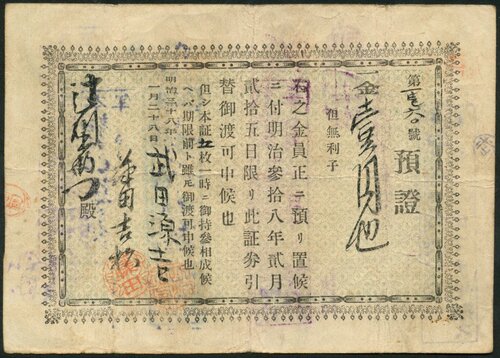 第壱号
預證
一金壹円也
但無利子
右之金員正ニ預リ置候
ニ付明治参拾八年貳月
貳拾五日限リ此証券引
替御渡可申候也
但シ本証五枚一時ニ御持参相成候
ヘバ期限前ト雖ﾓ御渡可申候也
明治三十八年
一月二十八日
武田源吉
殿